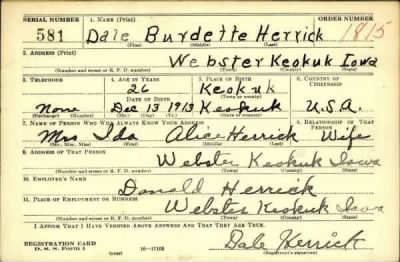 SERIAL NUMBER 1. NAME (Print) ORDER NUMBER
581 Dale Burdette Herrick 1815
(First) (Middle) (Last)
2. ADDRESS (Print)
Webster Keokuk Iowa
(Number and street or R. F. D. number) (Town) (County) (State)
3. TELEPHONE 4. AGE IN YEARS 5. PLACE OF BIRTH 6. COUNTRY OF CITIZENSHIP
26 Keokuk
DATE OF BIRTH (Town or county)
None Dec 13 1913 Keokuk U.S.A.
(Exchange) (Number) (Mo.) (Day) (Yr.) (State or country)
7. NAME OF PERSON WHO WILL ALWAYS KNOW YOUR ADDRESS 8. RELATIONSHIP OF THAT PERSON
Mrs Ida Alice Herrick Wife
(Mr., Mrs., Miss) (First) (Middle) (Last)
9. ADDRESS OF THAT PERSON
Webster Keokuk Iowa
(Number and street or R. F. D. number) (Town) (County) (State)
10. EMPLOYER'S NAME
Donald Herrick
11. PLACE OF EMPLOYMENT OR BUSINESS
Webster Keokuk Iowa
(Number and street or R. F. D. number) (Town) (County) (State)
I AFFIRM THAT I HAVE VERIFIED ABOVE ANSWERS AND THAT THEY ARE TRUE.
REGISTRATION CARD
D. S. S. Form 1 (over) 16—17105
Dale Herrick
(Registrant's signature)